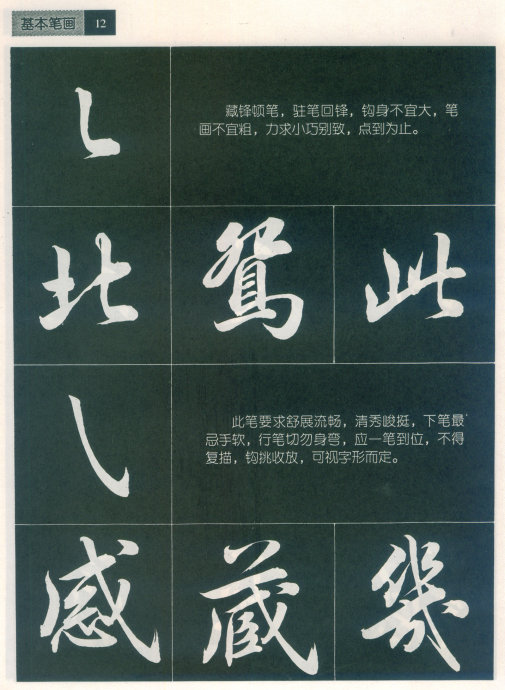 基本笔画 12
藏锋顿笔，驻笔回锋，钩身不宜大，笔
画不宜粗，力求小巧别致，点到为止。
北 鸳 此
此笔要求舒展流畅，清秀峻挺，下笔最
忌手软，行笔切勿身弯，应一笔到位，不得
复描，钩挑收放，可视字形而定。
感 蔵 幾